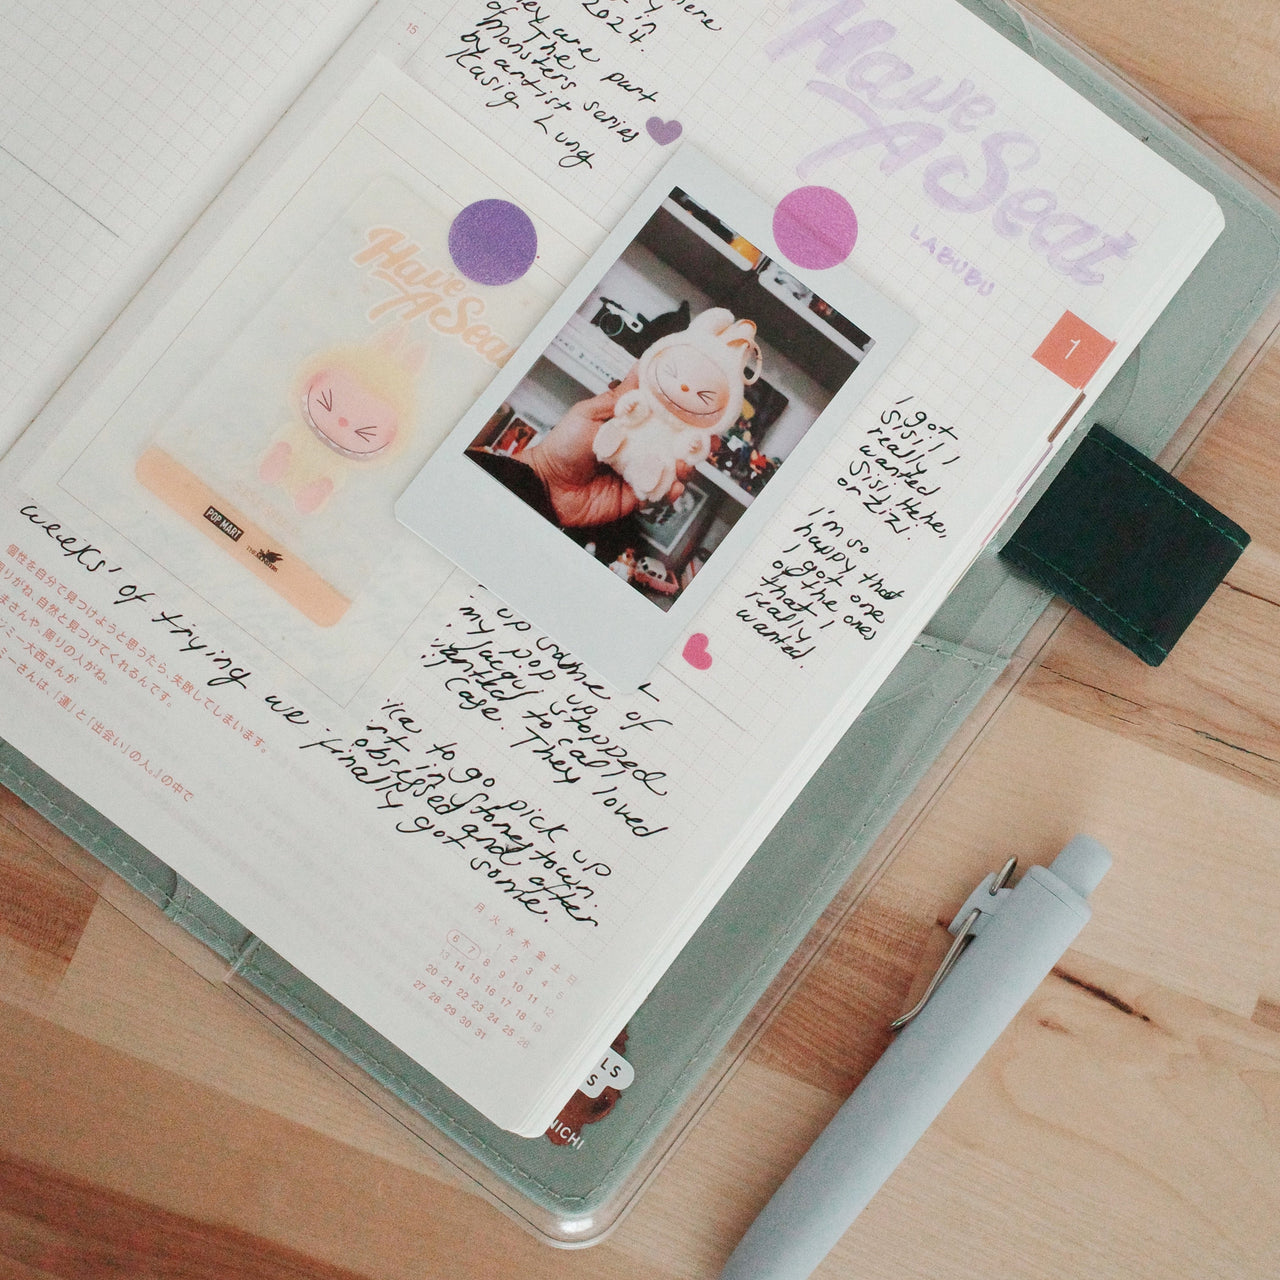 15
here
2024.
They are part
of The
Monsters series
by artist
Kasig Lung
Have
A Seat
LABUBU
1
Have
A Sea
POP MART
I got
Sisi! I
really
wanted
Sisi, Hehe,
or ZiZi.
I'm so
happy that
I got one
of the ones
that I
really
wanted.
up some of
my pop up,
Jacqui stopped
wanted to call
Case. They loved
to go pick up
in Stonestown.
obsessed and after
weeks' of trying we finally got some.
個性を自分で見つけようと思うたら、失敗してしまいます。
周りがね、自然と見つけてくれるんです。
まさんや、周りの人がね。
ツミー大西さんが
ミーさんは、「運」と「出会い」の人。』の中で
月 火 水 木 金 土 日
1 2 3 4 5
6 7 8 9 10 11 12
13 14 15 16 17 18 19
20 21 22 23 24 25 26
27 28 29 30 31
LS
S
NICHI